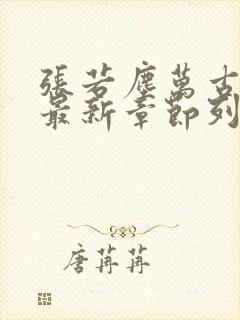 張若塵萬古
最新章節列
唐苒苒